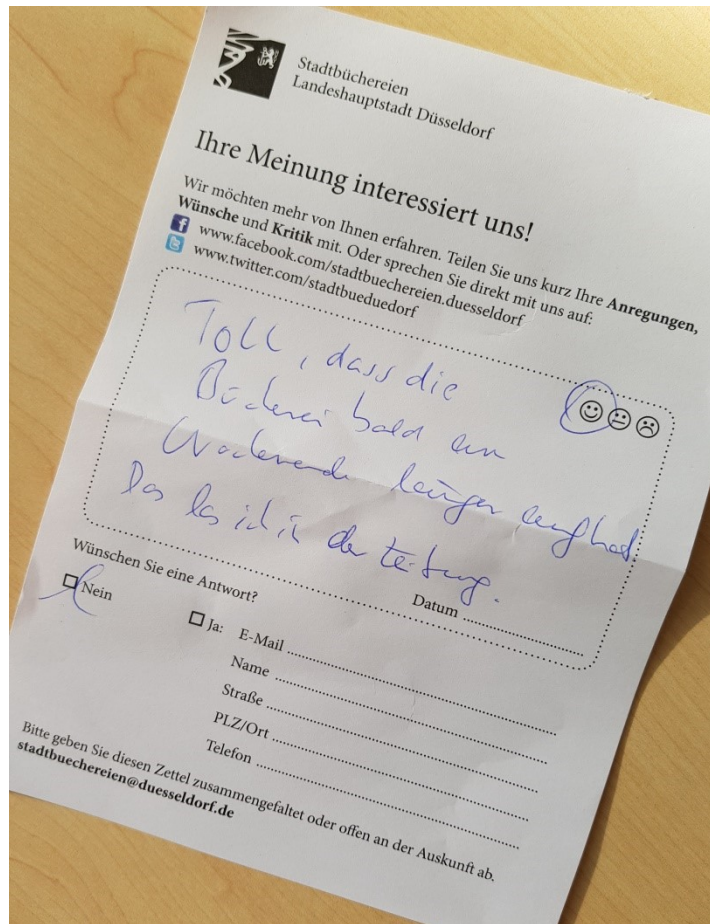 Stadtbüchereien
Landeshauptstadt Düsseldorf
Ihre Meinung interessiert uns!
Wir möchten mehr von Ihnen erfahren. Teilen Sie uns kurz Ihre Anregungen,
Wünsche und Kritik mit. Oder sprechen Sie direkt mit uns auf:
www.facebook.com/stadtbuechereien.duesseldorf
www.twitter.com/stadtbueduedorf
Toll, dass die
Bücherei bald am
Wochenende länger aufhat.
Das las ich in der Zeitung.
Wünschen Sie eine Antwort?
Datum
Nein
Ja: E-Mail
Name
Straße
PLZ/Ort
Telefon
Bitte geben Sie diesen Zettel zusammengefaltet oder offen an der Auskunft ab.
stadtbuechereien@duesseldorf.de